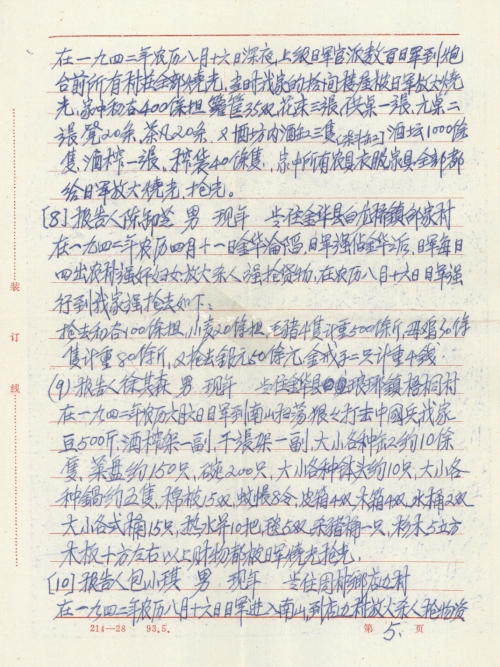 在一九四二年农历八月十六日深夜,上级日军官派数百日军到炮
台前所有村庄全部烧光,当时我家的 间楼屋被日军放火烧
光,家中和谷400余担 箩筐35双,花床三張,供桌一張,九桌二
張,凳20条,茶几20条,又酒坊内酒缸三隻, 酒坛1000余
隻,酒榨一張,榨袋40余隻,家中所有家具衣服家具全部都
给日军放火烧光,抢光。
[8] 报告人陈 男 现年 坐住金华县白龙桥镇邵家村
在一九四二年农历四月十一日金华沦陷,日军强佔金华后,日军每日
四出农村强奸妇女放火杀人强抢货物,在农历八月十六日日军强
行到我家强抢去如下、
抢去和谷100余担,小麦20余担,毛猪4隻计重500余斤,母鸡30余
隻计重80余斤,又抢去銀元50余元,金戒子二只计重4钱。
(9) 报告人徐其森 男 现年 坐住金华县琅琊镇梧桐村
在一九四二年农历六月六日日军到南山扫荡 打击中國兵找家
豆500斤,酒榨架一副,千張架一副,大小各种缸约10余
隻,菜盘约150只,碗200只,大小各种钵头约10只,大小各
种鍋约五隻,棉被15双,蚊帳8令,皮箱4双,木箱4双,水桶2双
大小各式桶15只,热水 10把,毯5双,禾 桶一只,杉木5立方
木板十方左右以上财物都被日军烧光抢光。
[10] 报告人包小琪 男 现年 坐住周村鄉店力村
在一九四二年农历八月十六日日军进入南山,到店力村放火杀人抢物资
装
订
线
214—28 93.5.
第 5. 页